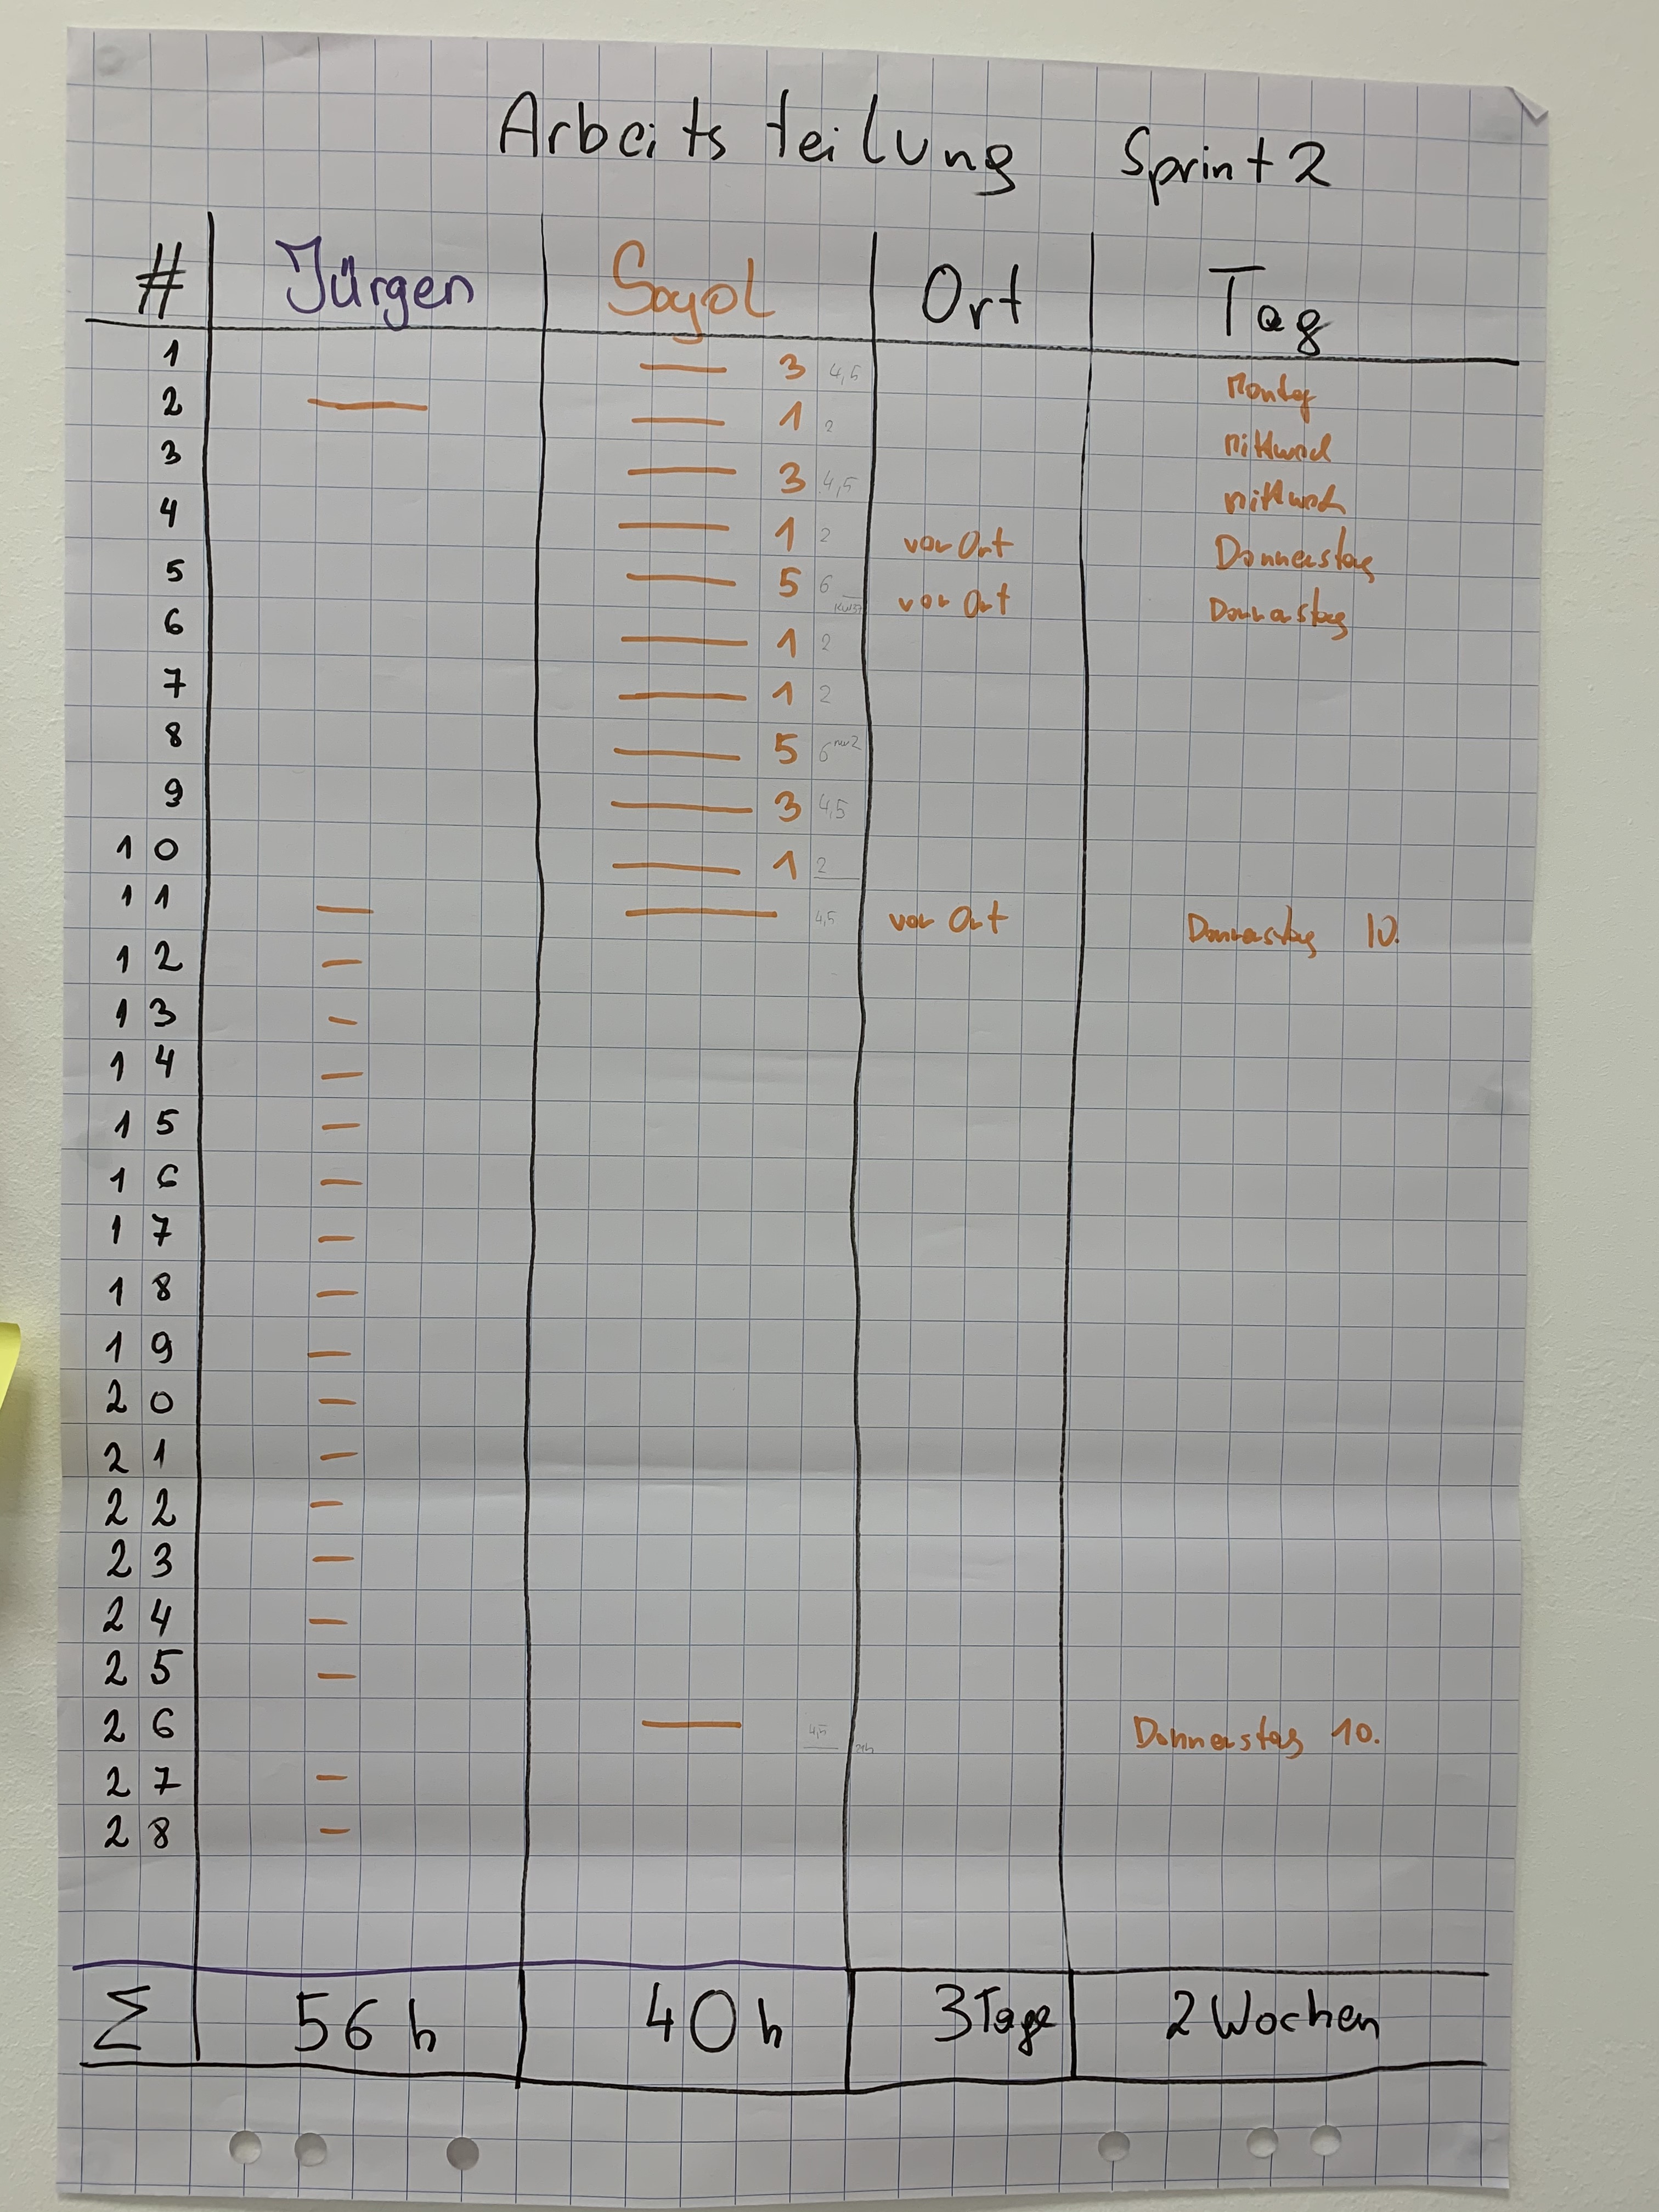 Arbeitsteilung Sprint 2
# Jürgen Sayol Ort Tag
1 — 3 4,5 Montag
2 — — 1 2 Mittwoch
3 — 3 4,5 Mittwoch
4 — 1 2 vor Ort Donnerstag
5 — 5 6 vor Ort Donnerstag
6 — 1 2
7 — 1 2
8 — 5 6
9 — 3 4,5
10 — 1 2
11 — — 4,5 vor Ort Donnerstag 10.
12 —
13 —
14 —
15 —
16 —
17 —
18 —
19 —
20 —
21 —
22 —
23 —
24 —
25 —
26 — 4,5 Donnerstag 10.
27 —
28 —
Σ 56 h 40 h 3 Tage 2 Wochen